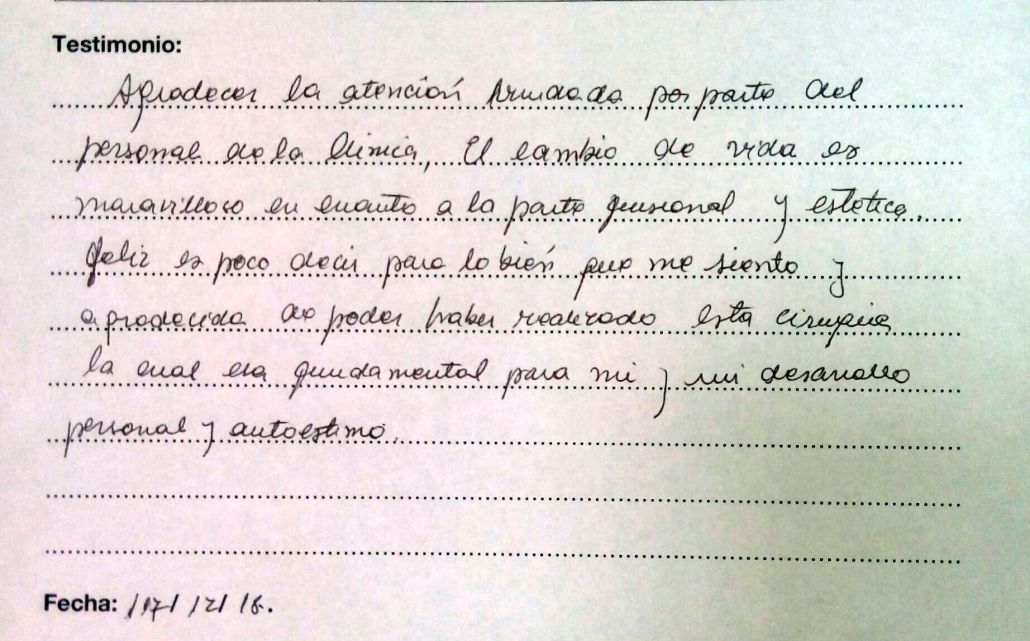 Testimonio:
Agradecer la atención brindada por parte del
personal de la Clínica, El cambio de vida es
maravilloso en cuanto a la parte funcional y estética.
Feliz es poco decir para lo bién que me siento y
agradecida de poder haber realizado esta cirugía
la cual era fundamental para mi y mi desarrollo
personal y autoestima.
Fecha: